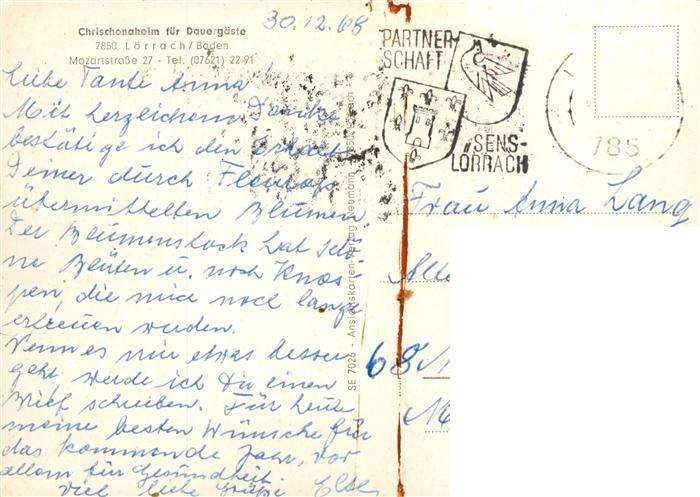 Chrischonaheim für Dauergäste
7850 Lörrach/Baden
Mozartstraße 27 - Tel. (07621) 22 91
30.12.68
Liebe Tante Anna
Mit herzlichem Danke
bestätige ich den Erhalt
Deiner durch Fleurop
übermittelten Blumen.
Der Blumenstock hat schö-
ne Blüten u. noch Knos-
pen, die mich noch lange
erfreuen werden.
Wenn es mir etwas besser
geht, werde ich Dir einen
Brief schreiben. Für heute
meine besten Wünsche für
das kommende Jahr, vor
allem für Gesundheit.
Viel liebe Grüße
PARTNER-
SCHAFT
SENS-
LÖRRACH
785
Frau Anna Lang
68
SE 7026 - Ansichtskarten-Verlag